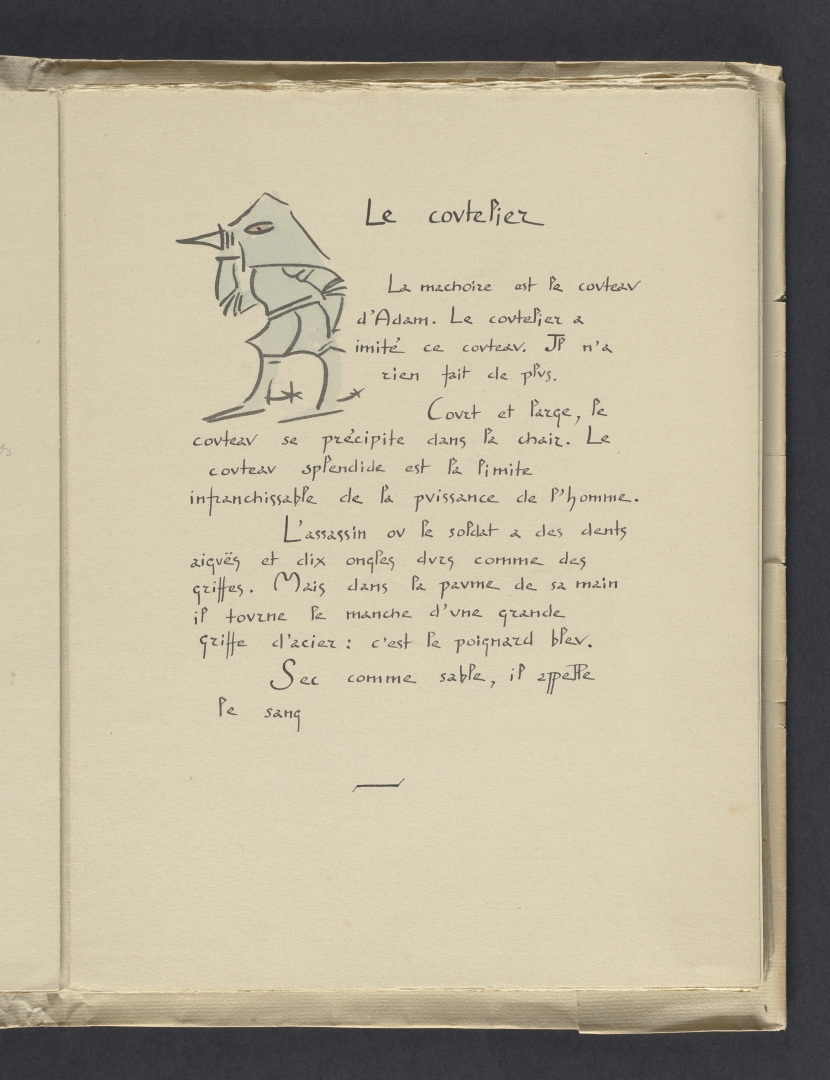 Le coutelier
La machoire est le couteau
d'Adam. Le coutelier a
imité ce couteau. Il n'a
rien fait de plus.
Court et large, le
couteau se précipite dans la chair. Le
couteau splendide est la limite
infranchissable de la puissance de l'homme.
L'assassin ou le soldat a des dents
aiguës et dix ongles durs comme des
griffes. Mais dans la paume de sa main
il tourne le manche d'une grande
griffe d'acier : c'est le poignard bleu.
Sec comme sable, il appelle
le sang